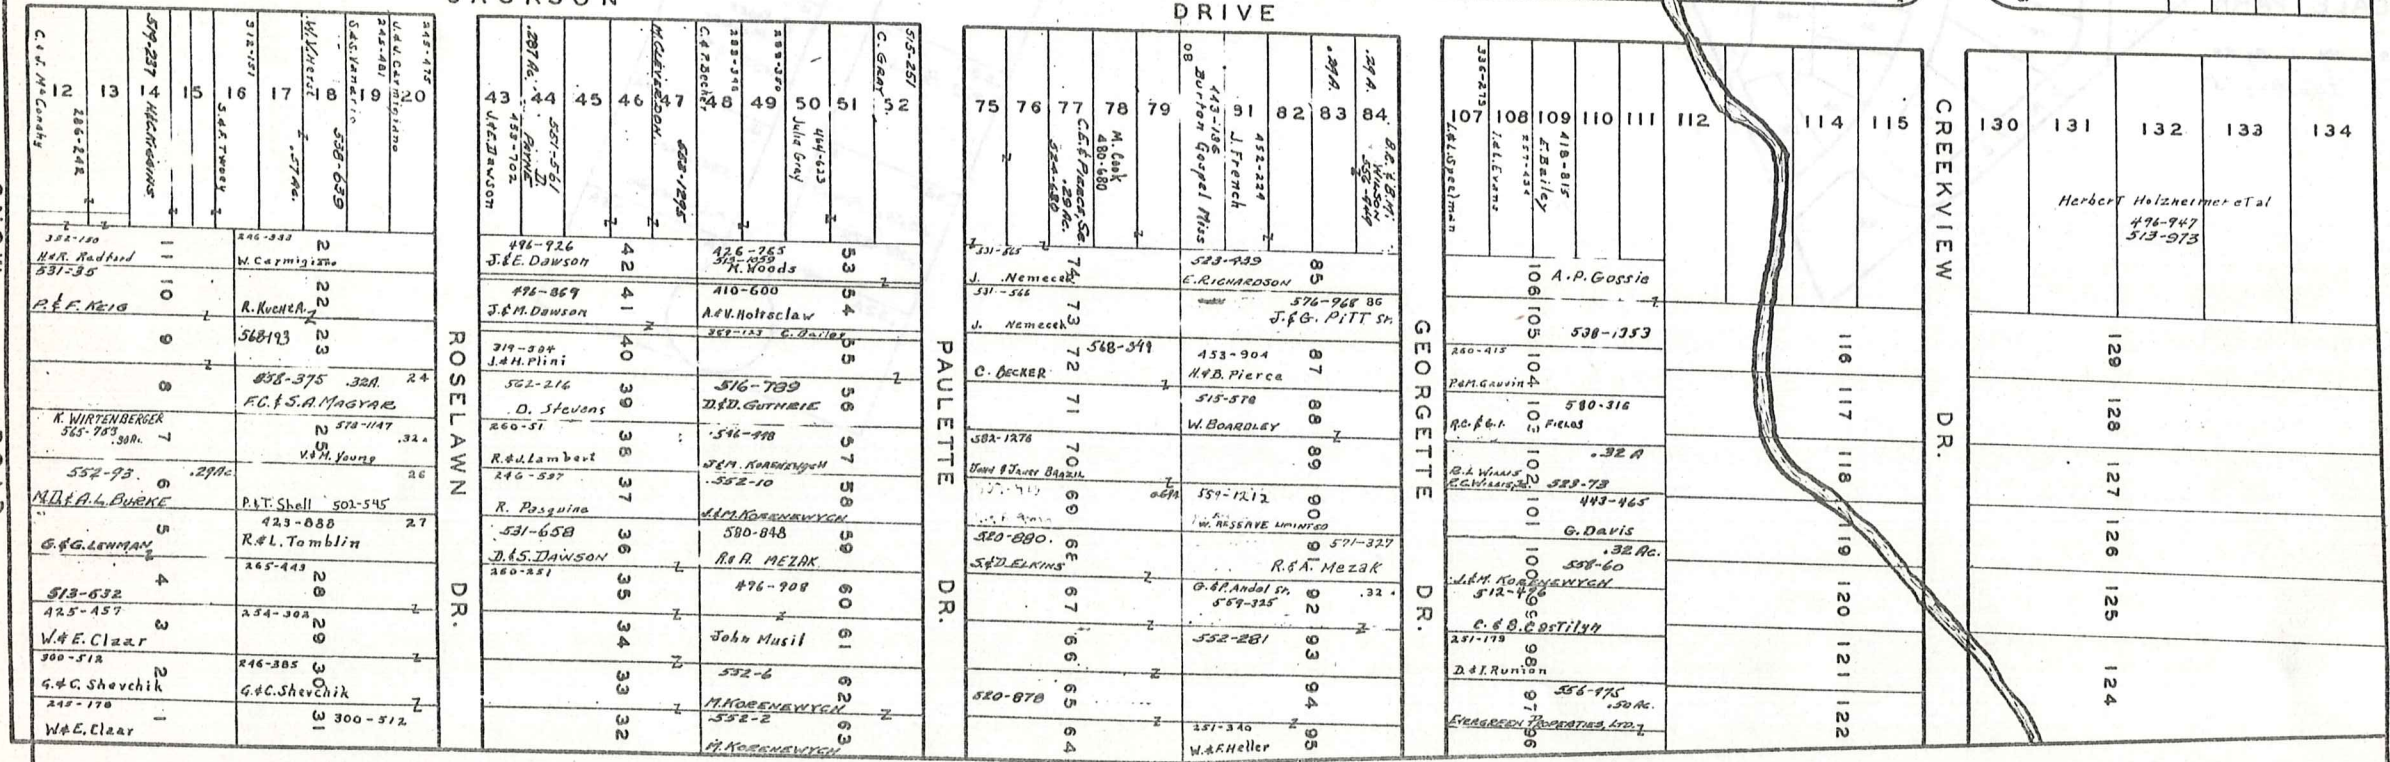 JACKSON
DRIVE
12
13
14
15
16
17
18
19
20
286-242
519-237
312-151
S.&F. Twoey
W.V. Herst
.57 Ac.
538-639
245-481
J.&J. Carmigiano
245-475
11
H&R. Radford
531-35
10
P.& F. KEIG
9
8
K. WIRTENBERGER
565-753
.30Ac.
7
552-93
.29Ac
6
M.D.& A.L. BURKE
5
G.& G. LEHMAN
4
513-632
425-457
3
W.& E. Claar
300-512
2
G.& C. Shevchik
245-178
1
W&E. Claar
246-333
2
W. Carmigiano
22
R. KUCHTA
568-193
23
.32A.
24
F.C.& S.A. MAGYAR
25
578-1147
.32A
V.& M. Young
26
P.& T. Shell 502-545
423-888
27
R.& L. Tomblin
265-443
28
254-302
29
246-385
30
G.& C. Shevchik
31
300-512
ROSELAWN DR.
43
44
45
46
47
48
49
50
51
52
J.&E. Dawson
453-702
.287 Ac.
551-561
PAYNE
M. CLEVERDON
528-1295
C.& P. Becker
464-623
Julia Gray
C. GRAY
515-251
496-926
42
J.& E. Dawson
496-869
41
J.& M. Dawson
319-584
40
J.& H. Plini
562-216
39
D. Stevens
260-51
38
R.& J. Lambert
246-597
37
R. Pasquina
531-658
36
D.& S. DAWSON
260-251
35
34
33
32
426-765
513-1059
M. Woods
53
410-600
54
A.& V. Holtsclaw
C. Bailey
55
516-789
56
D.& D. GUTHRIE
546-448
57
J.& M. KORENEWYCH
552-10
58
J.& M. KORENEWYCH
580-848
59
R.& A. MEZAK
496-908
60
John Musil
61
552-6
62
M. KORENEWYCH
552-2
63
M. KORENEWYCH
PAULETTE DR.
75
76
77
78
79
08
91
82
83
84
C.E.& PIERCE, Sr.
.29 Ac.
524-680
M. Cook
480-680
Burton Gospel Miss
443-186
J. French
452-224
.29A.
.29A.
B.R. & B.M.
WILSON
556-949
531-565
74
J. Nemecek
531-566
73
J. Nemecek
568-349
72
C. BECKER
71
582-1276
70
69
520-880
68
S.& D. ELKINS
67
66
520-878
65
64
523-439
85
E. RICHARDSON
576-968 86
J.& G. PITT Sr.
453-904
87
H.& B. Pierce
515-578
88
W. BOARDLEY
89
559-1212
90
W. RESERVE LIMINTED
571-327
91
R.& A. Mezak
G.& P. Andal Sr.
559-325
92
.32
552-281
93
94
251-340
95
W.& F. Heller
GEORGETTE DR.
107
108
109
110
111
112
114
115
336-273
L.&L. Speelman
J.&L. Evans
257-434
418-815
E. Bailey
106
A.P. Gossie
105
538-1353
260-415
104
P&M. Gauvin
580-316
103
R.C.& G.I. FIELDS
.32 A
102
523-73
443-465
101
G. Davis
.32 Ac.
558-60
100
J.&M. KORENEWYCH
512-496
99
C. & B. Costilyn
251-179
98
D.& I. Runion
556-475
.50 Ac.
97
EVERGREEN PROPERTIES, LTD.
96
116
117
118
119
120
121
122
CREEKVIEW DR.
130
131
132
133
134
Herbert Holzheimer et al
496-947
513-973
129
128
127
126
125
124